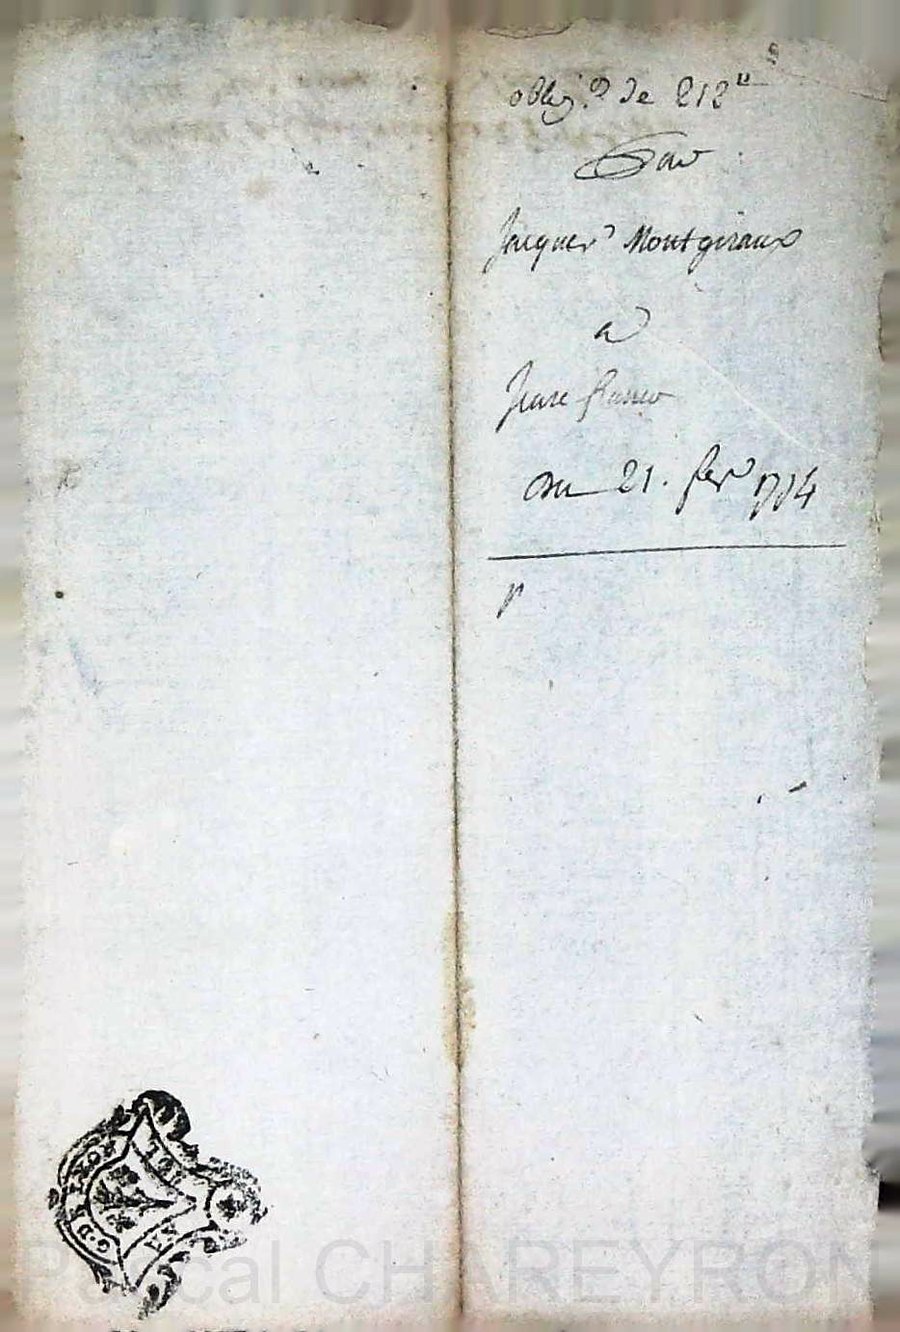 oblig.on de 212 ll
Par
Jacques Montgiraux
a
Jean
Du 21. fev 1774
G. DE LYON
Pascal CHAREYRON